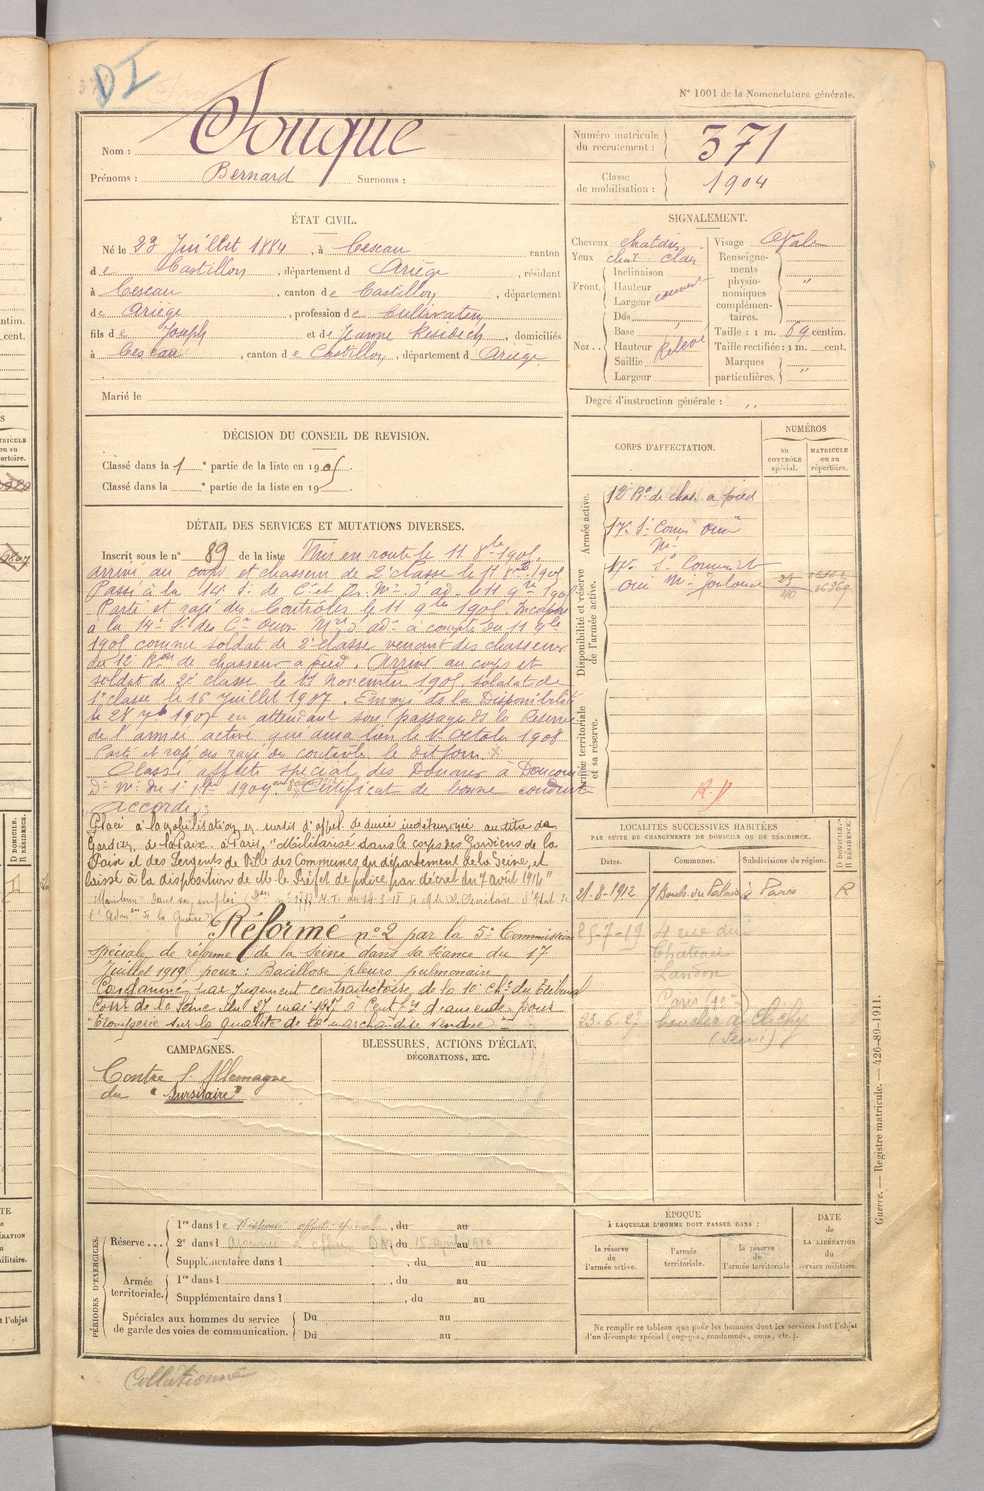 DI
N° 1001 de la Nomenclature générale.
Nom : Souque
Prénoms : Bernard Surnoms :
Numéro matricule du recrutement : 371
Classe de mobilisation : 1904
ÉTAT CIVIL.
Né le 23 Juillet 1884, à Cescau canton
de Castillon, département d Ariège, résidant
à Cescau, canton de Castillon, département
de Ariège, profession de Cultivateur
fils de Joseph et de Jeanne domiciliés
à Cescau, canton de Castillon, département d Ariège
Marié le
SIGNALEMENT.
Cheveux chatains
Yeux chat. clair
Front. Inclinaison
Hauteur
Largeur couvert
Nez. Dos
Base
Hauteur Relevé
Saillie
Largeur
Visage Ovale
Renseignements physionomiques complémentaires. "
Taille : 1 m. 69 centim.
Taille rectifiée : 1 m. cent.
Marques particulières. "
Degré d'instruction générale : "
DÉCISION DU CONSEIL DE REVISION.
Classé dans la 1e partie de la liste en 1905
Classé dans la e partie de la liste en 19
DÉTAIL DES SERVICES ET MUTATIONS DIVERSES.
Inscrit sous le n° 89 de la liste Mis en route le 11 8bre 1905,
arrivé au corps et chasseur de 2e classe le 11 8bre 1905
Passé à la 14e S. de C. et O. Mre d'ad. le 11 9bre 1905
Parti et rayé des Contrôles le 11 9bre 1905 Incorporé
à la 14e S. des Cis Ouv. Mres d'ad. à compter du 11 9bre
1905 comme soldat de 2e classe venant des chasseurs
du 12e Bon de chasseur à pied. Arrivé au corps et
soldat de 2e classe le 11 novembre 1905, soldat de
1e classe le 16 Juillet 1907. Envoyé ds la Disponibilité
le 28 7bre 1907 en attendant son passage ds la Réserve
de l'armée active qui aura lieu le 1er octobre 1908
Parti et rayé du contrôle le dit jour. X
Classé affecté spécial des Douanes à
Certificat de bonne conduite
accordé
Placé à la mobilisation en sursis d'appel de durée indéterminée au titre de
Gardien de la Paix à Paris, "Militarisé dans le corps des Gardiens de la
Paix et des Sergents de Ville des Communes du département de la Seine, et
laissé à la disposition de M. le Préfet de police par décret du 7 août 1914"
Maintenu dans son emploi
Réformé n° 2 par la 5e Commission
spéciale de réforme de la Seine dans sa séance du 17
Juillet 1919 pour : Bacillose pleuro pulmonaire
Condamné par Jugement contradictoire de la 10e ch. du tribunal
Corr. de la Seine du 27 mai 1927 à Cent frs d'amende pour
Tromperie sur la qualité de la marchandise vendue
CORPS D'AFFECTATION.
NUMÉROS
au CONTRÔLE spécial.
MATRICULE ou au répertoire.
Armée active.
12e Bon de chas. à pied
17e S. Commis Ouvr
Mre
Disponibilité et réserve de l'armée active.
17e Son Commis et
Ouv Mre Toulouse
Armée territoriale et sa réserve.
LOCALITÉS SUCCESSIVES HABITÉES
PAR SUITE DE CHANGEMENTS DE DOMICILE OU DE RÉSIDENCE.
Dates. Communes. Subdivisions de région.
D DOMICILE. R RÉSIDENCE.
28-8-1912 7 Boul. du Palais à Paris R
25-7-19 4 rue du
Château
Landon
Paris (10e)
23-6-27 boucher à Clichy
(Seine)
CAMPAGNES.
Contre l'Allemagne
du "Sursitaire"
BLESSURES, ACTIONS D'ÉCLAT, DÉCORATIONS, ETC.
PÉRIODES D'EXERCICES.
Réserve... 1re dans le , du au
2e dans l , du 15 avril au 1910
Supplémentaire dans l , du au
Armée territoriale. 1re dans l , du au
Supplémentaire dans l , du au
Spéciales aux hommes du service de garde des voies de communication. Du au
Du au
ÉPOQUE
À LAQUELLE L'HOMME DOIT PASSER DANS :
la réserve de l'armée active.
l'armée territoriale.
la réserve de l'armée territoriale
DATE DE LA LIBÉRATION du service militaire.
Ne remplir ce tableau que pour les hommes dont les services font l'objet
d'un décompte spécial (engagés, condamnés, omis, etc.).
Guerre. — Registre matricule. — 426-89-1911.
Collationné